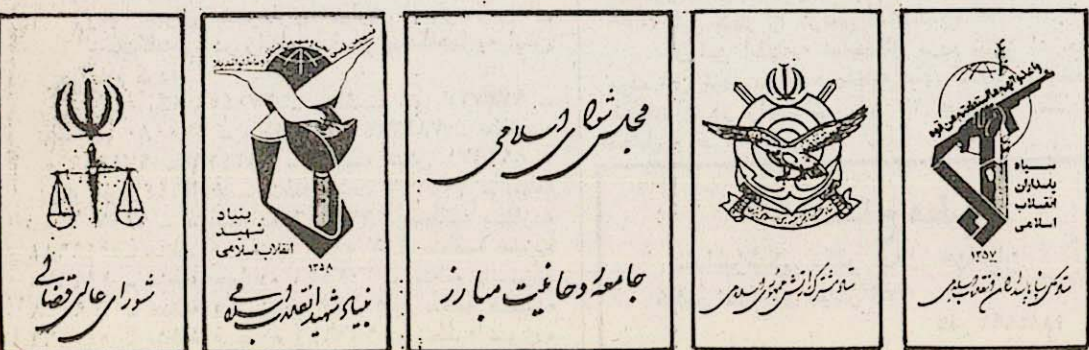 واعدوا لهم ما استطعتم من قوة
سپاه
پاسداران
انقلاب
اسلامی
۱۳۵۷
ستاد مرکزی سپاه پاسداران انقلاب اسلامی
ستاد مشترک ارتش جمهوری اسلامی
مجلس شورای اسلامی
جامعه روحانیت مبارز
بنیاد
شهید
انقلاب اسلامی
۱۳۵۸
بنیاد شهید انقلاب اسلامی
شورای عالی قضائی